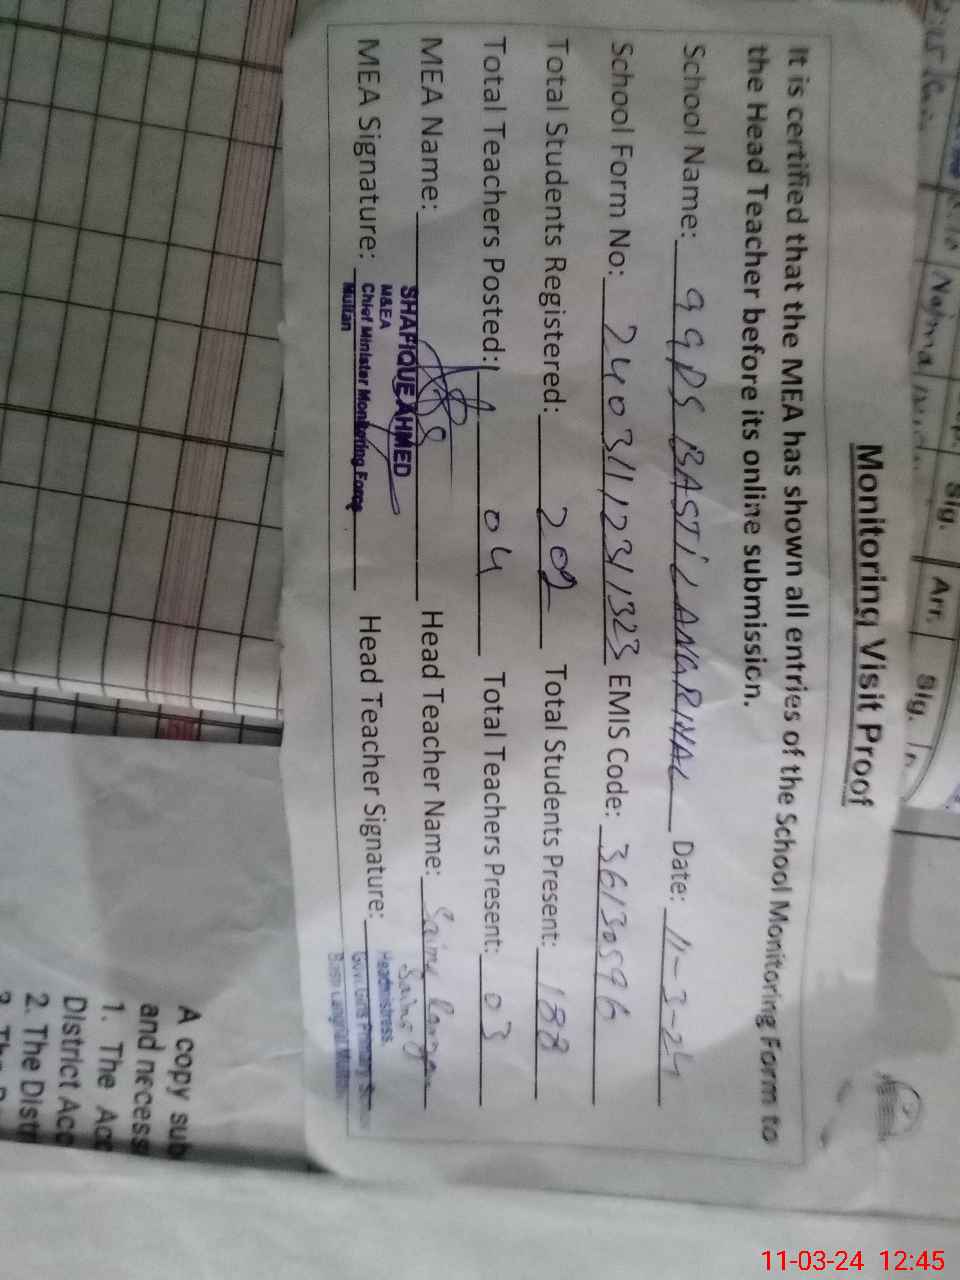 Monitoring Visit Proof
It is certified that the MEA has shown all entries of the School Monitoring Form to
the Head Teacher before its online submission.
School Name: GGPS BASTI LANGRIYAL Date: 11-3-24
School Form No: 2403111231323 EMIS Code: 36130596
Total Students Registered: 202 Total Students Present: 188
Total Teachers Posted: 04 Total Teachers Present: 03
MEA Name: Head Teacher Name: Saima
SHAFIQUE AHMED
M&EA
Chief Minister Monitoring Force
Multan
MEA Signature: Head Teacher Signature: Saima
Headmistress
Govt. Girls Primary School
Basti Langrial Multan
Najma
Sig. Arr. Sig.
A copy sub
and necess
1. The Acc
District Acc
2. The Distr
11-03-24 12:45